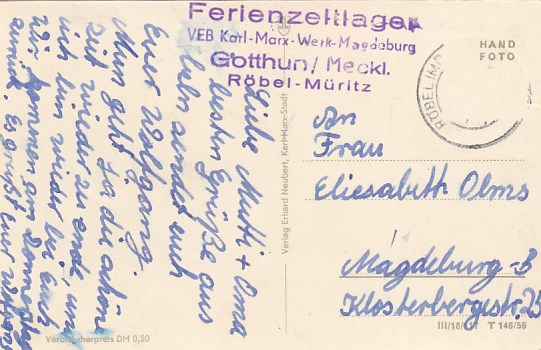 Ferienzeltlager
VEB Karl-Marx-Werk-Magdeburg
Gotthun/Meckl.
Röbel-Müritz
HAND
FOTO
RÖBEL (MÜ
Liebe Mutti + Oma
besten Grüße aus
sendet euch
Euer Wolfgang.
Nun geht ja die schöne
Zeit wieder zu ende und
ich bin wieder bei Euch.
Wir kommen am Donnerstag
zurück. Es grüßt euer Wolfgang
An
Frau
Eliesabeth Olms
Magdeburg-B
Klosterbergestr. 25
Verlag Erhard Neubert, Karl-Marx-Stadt
Verbraucherpreis DM 0,20
III/18/177 T 146/56